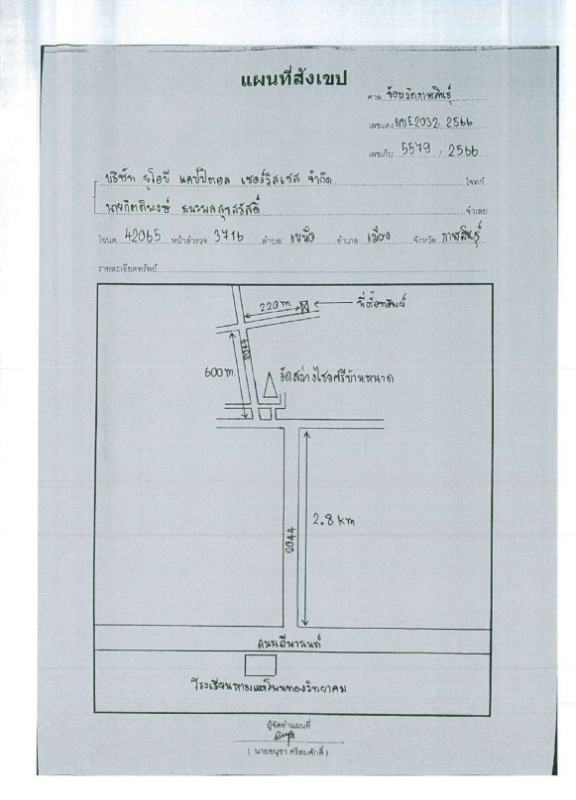 แผนที่สังเขป
ศาล จังหวัดกาฬสินธุ์
เลขแดง ผบE2032, 2566
เลขเก็บ 5579, 2566
บริษัท ยูโอบี แคปปิตอล เซอร์วิสเซส จำกัด โจทก์
นายกิตติพงษ์ จำเลย
โฉนด 42065 หน้าสำรวจ 3716 ตำบล เหนือ อำเภอ เมือง จังหวัด กาฬสินธุ์
รายละเอียดทรัพย์
220 m
ที่ตั้งทรัพย์
2044
600 m.
วัดสว่างไชยศรีบ้านหนาด
2.8 km
2044
ถนนถีนานนท์
ผู้จัดทำแผนที่